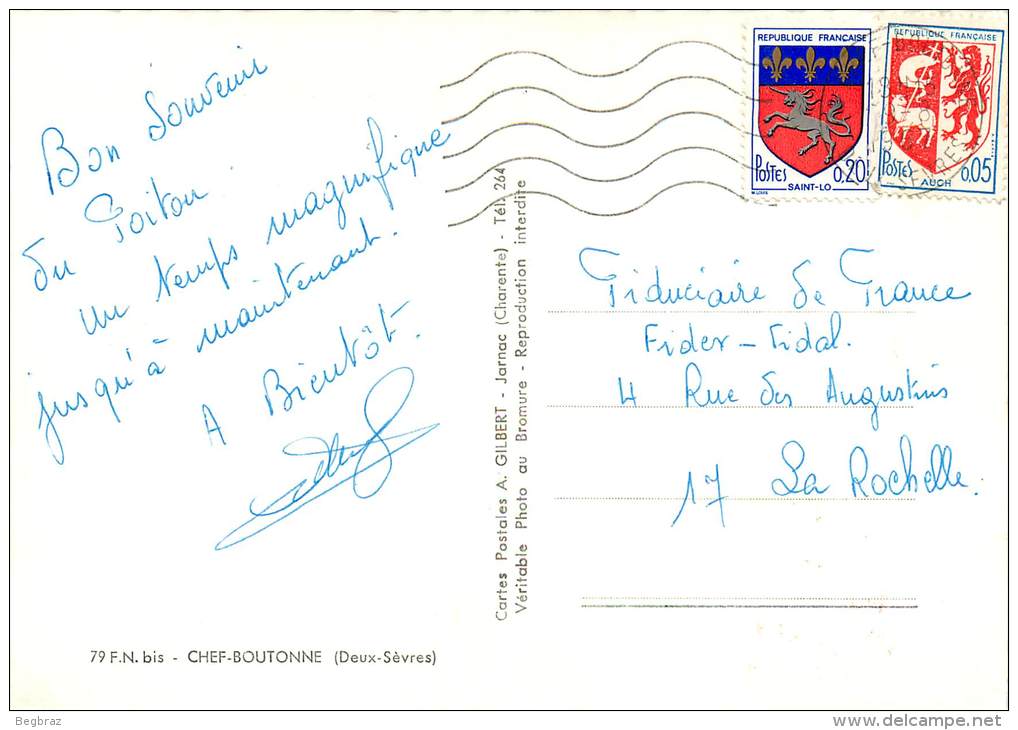 Bon Souvenir
du Poitou.
un temps magnifique
jusqu'à maintenant.
A Bientôt.
79 F.N. bis - CHEF-BOUTONNE (Deux-Sèvres)
Cartes Postales A. GILBERT - Jarnac (Charente) - Tél. 264
Véritable Photo au Bromure - Reproduction interdite
REPUBLIQUE FRANÇAISE
POSTES 0,20
SAINT-LO
REPUBLIQUE FRANÇAISE
POSTES 0,05
AUCH
Fiduciaire de France
Fider - Fidal.
4 Rue des Augustins
17 La Rochelle.
Begbraz
www.delcampe.net